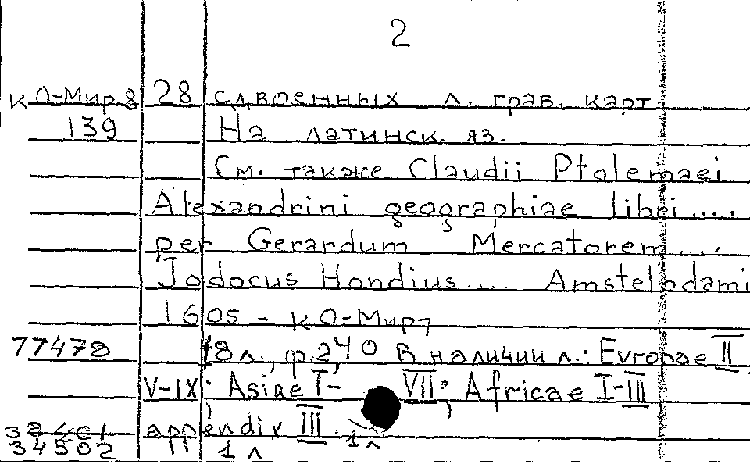 2
К О-Мир 8 28 сдвоенных л. грав. карт
139 На латинск. яз.
См. также Claudii Ptolemaei
Alexandrini geographiae libri ....
per Gerardum Mercatorem ...
Jodocus Hondius .... Amstelodami
1605 - К О-Мир 7
77478 18 л., р. 240 В наличии л.: Evropae II
V-IX; Asiae I- VII; Africae I-III
appendix III. 1л
34502 1 л